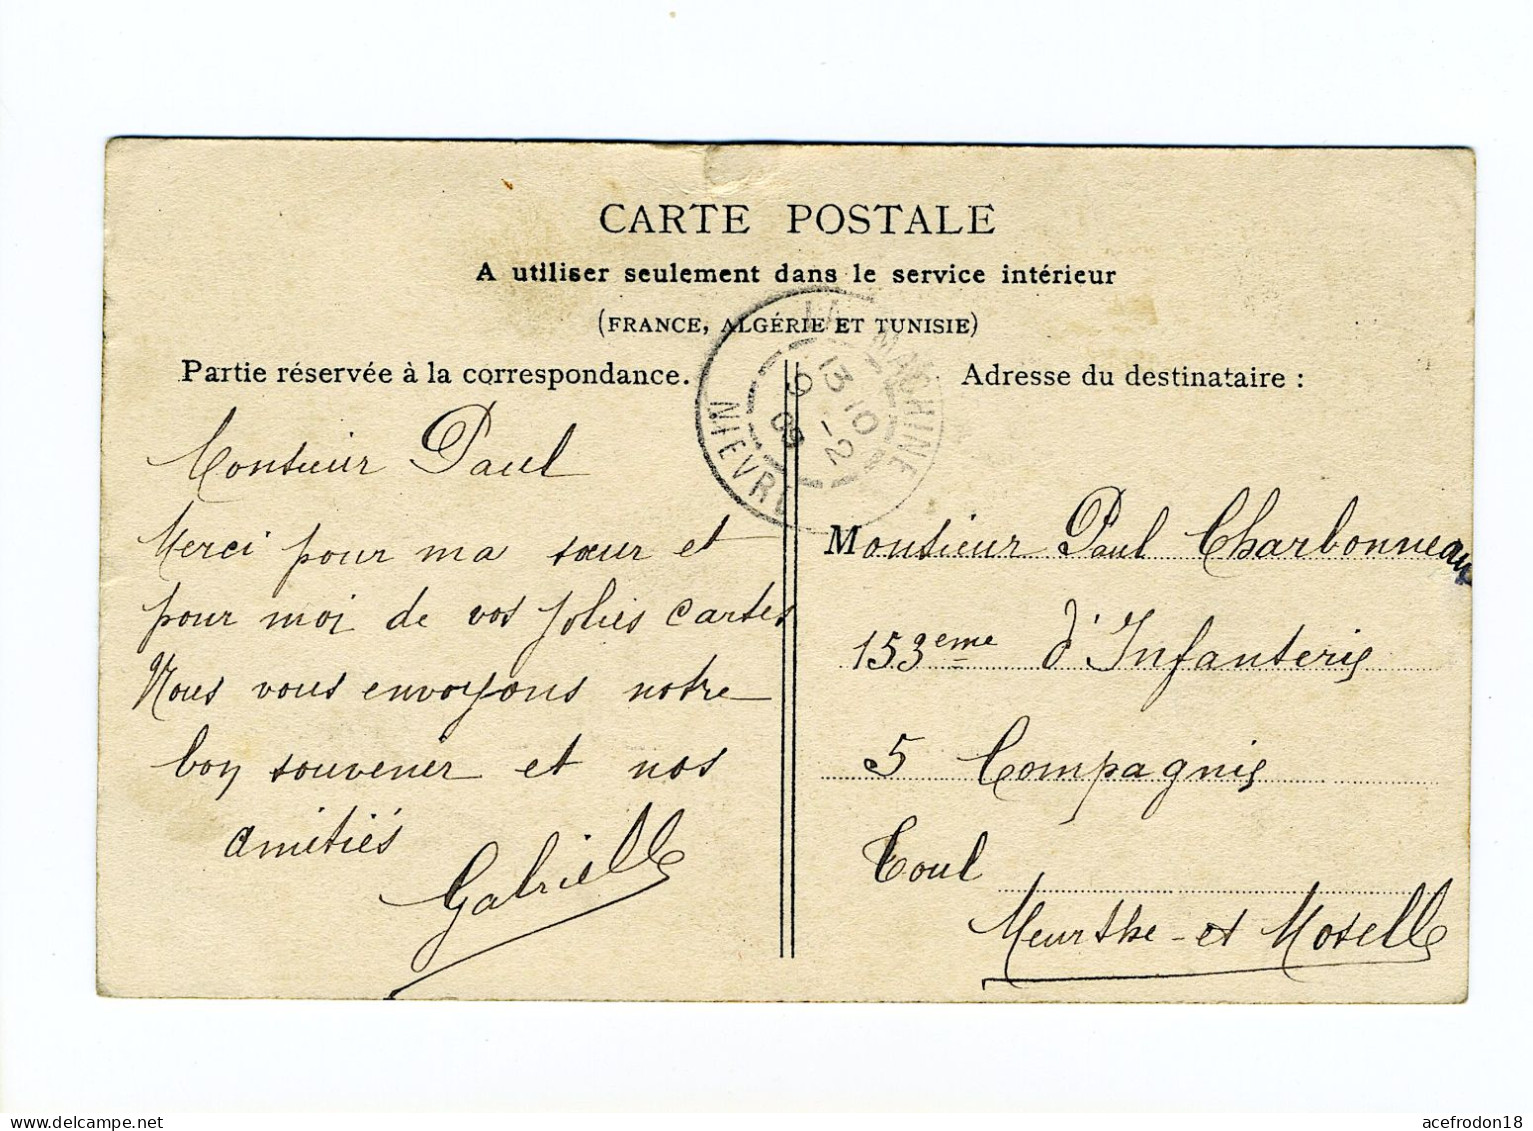 CARTE POSTALE
A utiliser seulement dans le service intérieur
(FRANCE, ALGÉRIE ET TUNISIE)
Partie réservée à la correspondance.
Monsieur Paul
Merci pour ma sœur et
pour moi de vos jolies cartes
Nous vous envoyons notre
bon souvenir et nos
amitiés
Gabrielle
LA MACHINE
13
9 - 2
NIEVRE
Adresse du destinataire :
Monsieur Paul Charbonneau
153eme d'Infanterie
5 Compagnie
Toul
Meurthe-et Moselle
delcampe.net
acefrodon18